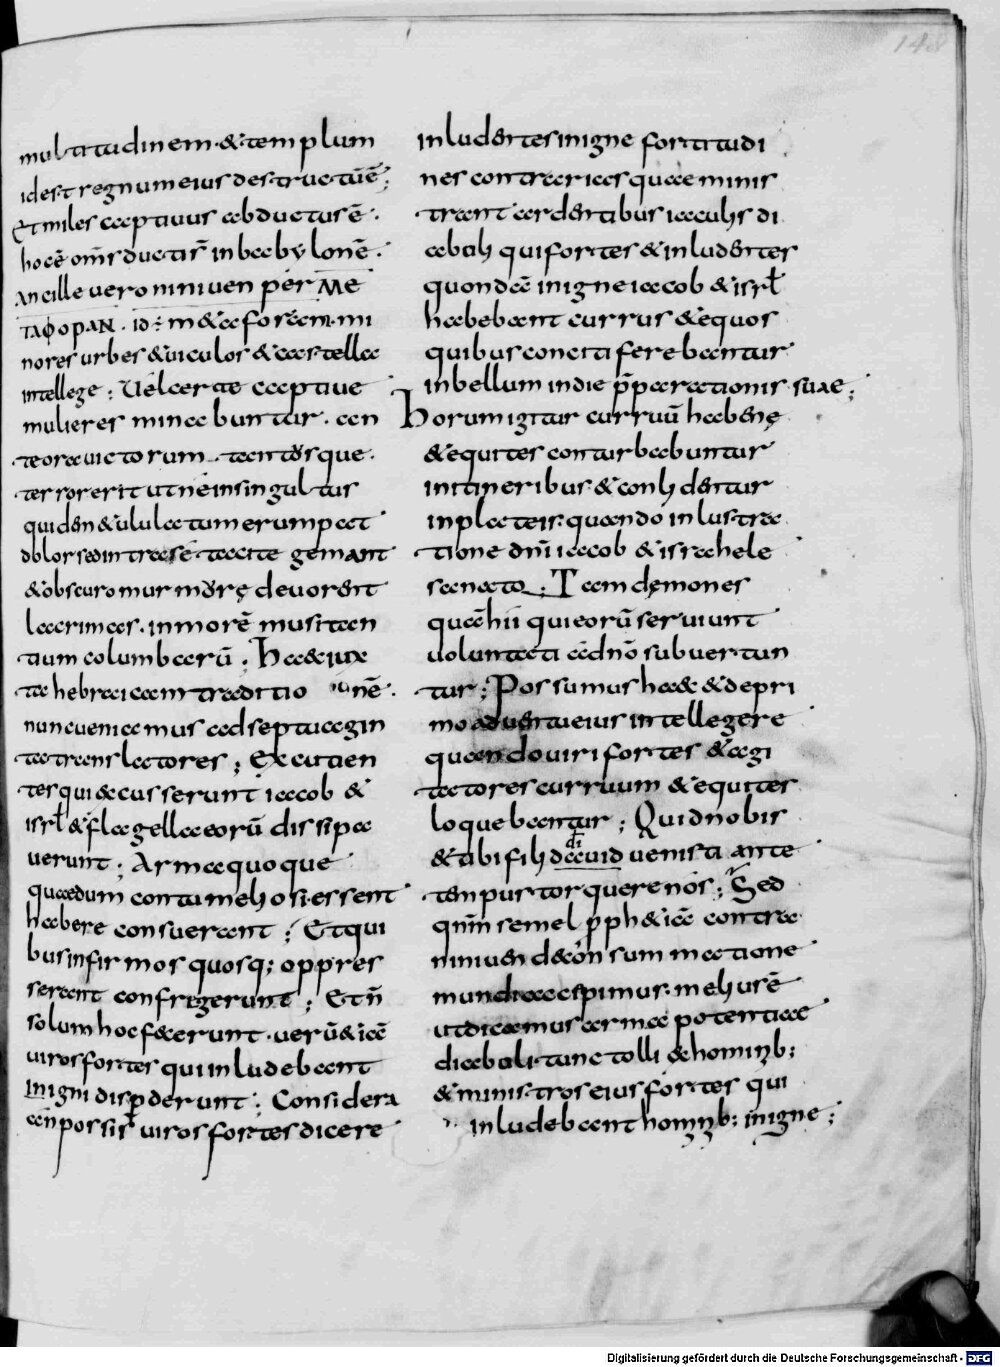 148
multitudinem · & templum
idest regnum eius destructū ē ;
Et miles captivus abductus ē ·
hoc ē om̄s ductisr̄ in babylonē ·
Ancille vero niniven per ΜΕ
ΤΑΦΟΡΑΝ · id ÷ m&aforam · mi
nores urbes & viculos & castella
intellege ; Vel certe captive
mulieres minabuntur · an
te ora victorum · tantusque ·
terror erit ut ne in singultus
quiden & ululatum erumpat
dolor sed intra se tacite gemant
& obscuro murmure devorent
lacrimas · in morē musitan
tium columbarū · Hac& iux
ta hebraicam traditionē ·
nunc veniamus ad septuagin
ta translatores ; Excutien
tes qui excusserunt iacob &
isrł & flagella eorū dissipa
verunt ; Arma quoque
quaedum conta melios i essent
habere consuerant ; Et qui
bus infirmos quosq; oppres
serant confregerunt ; Et n̄
solum hoc fecerunt · verū & iā
viros fortes qui inludebant
in igni disperderunt ; Considera
an possis viros fortes dicere
inludentes in igne fortitudi
nes contrarias quae minis
trant ardentibus iaculis di
aboli qui fortes & inludentes
quondā in igne iacob & isrł
habebant currus & equos
quibus concita ferebantur
in bellum in die p̄parationis suae ;
Horum igitur curruū habenę
& equites conturbabuntur
in itineribus & conlidentur
in plateis · quando inlustra
tione dn̄i iacob & israhele
sanato ; Tam dęmones
quā hii qui eorū serviunt
voluntati ad n̄o subvertun
tur ; Possumus hac & de pri
mo adventu eius intellegere
quando viri fortes & agi
tatores curruum & equites
loquebantur ; Quid nobis
& tibi fili david venisti ante
di
tenpus torquere nos ; Sed
qn̄m semel p̄ph&iā contra
niniven de con summatione
mundi accepimus · melius ē
ut dicamus arma potentiae
diaboli · tunc tolli ex hominib ;
& ministros eius fortes qui
inludebant hominib ; in igne ;
Digitalisierung gefördert durch die Deutsche Forschungsgemeinschaft - DFG